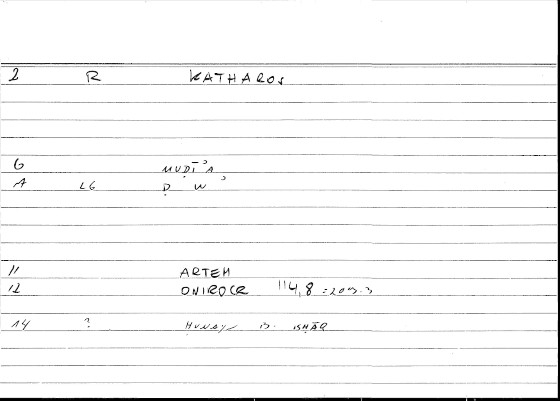 2 R KATHAROS
6 MUDĪʾA
A LG Ḍ W ʾ
11 ARTEM
12 ONIROCR 114,8 = 209.3
14 ? ḤUNAYN B. ISḤĀQ